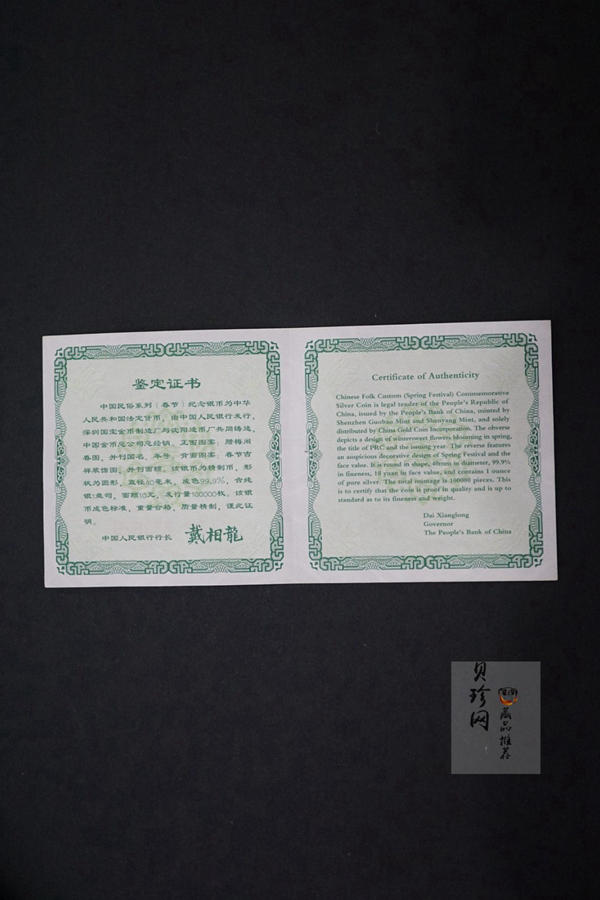 鉴定证书
中国民俗系列（春节）纪念银币为中华
人民共和国法定货币，由中国人民银行发行，
深圳国宝金币制造厂与沈阳造币厂共同铸造，
中国金币总公司总经销。正面图案：腊梅闹
春图，并刊国名、年号，背面图案：春节吉
祥装饰图，并刊面额。该银币为精制币，形
状为圆形，直径40毫米，成色99.9%，含纯
银1盎司，面额10元，发行量100000枚。该银
币成色标准，重量合格，质量精制，谨此证
明。
中国人民银行行长 戴相龍
Certificate of Authenticity
Chinese Folk Custom (Spring Festival) Commemorative
Silver Coin is legal tender of the People's Republic of
China, issued by the People's Bank of China, minted by
Shenzhen Guobao Mint and Shenyang Mint, and solely
distributed by China Gold Coin Incorporation. The obverse
depicts a design of wintersweet flowers blooming in spring,
the title of PRC and the issuing year. The reverse features
an auspicious decorative design of Spring Festival and the
face value. It is round in shape, 40mm in diameter, 99.9%
in fineness, 10 yuan in face value, and contains 1 ounce
of pure silver. The total mintage is 100000 pieces. This
is to certify that the coin is proof in quality and is up to
standard as to its fineness and weight.
Dai Xianglong
Governor
The People's Bank of China
贝珍网
藏品推荐